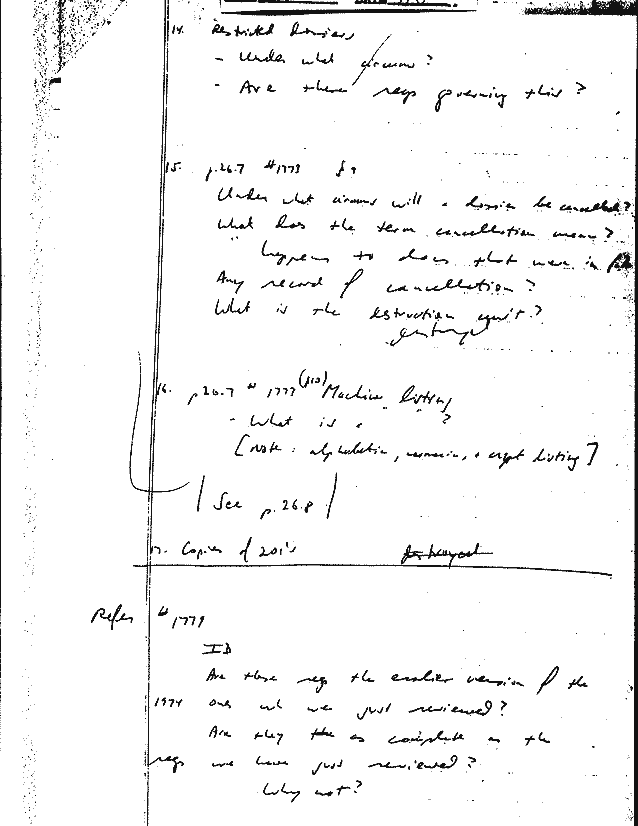 14. Restricted Dossiers
- Under what circums?
- Are there regs governing this?
15. p.26.7 #1773 § 9
Under what circums will a dossier be cancelled?
What does the term cancellation mean?
" happens to docs that were in file
Any record of cancellation?
What is the destruction unit?
16. p26.7 # 1773 (§10) Machine listing
- What is . ?
[note: alphabetic, numeric, + crypt listing]
See p.26.8
17. Copies of 201's destroyed
Refer #1779
ID
Are these regs the earlier version of the
1974 ones wh we just reviewed?
Are they the as complete as the
regs we have just reviewed?
Why not?